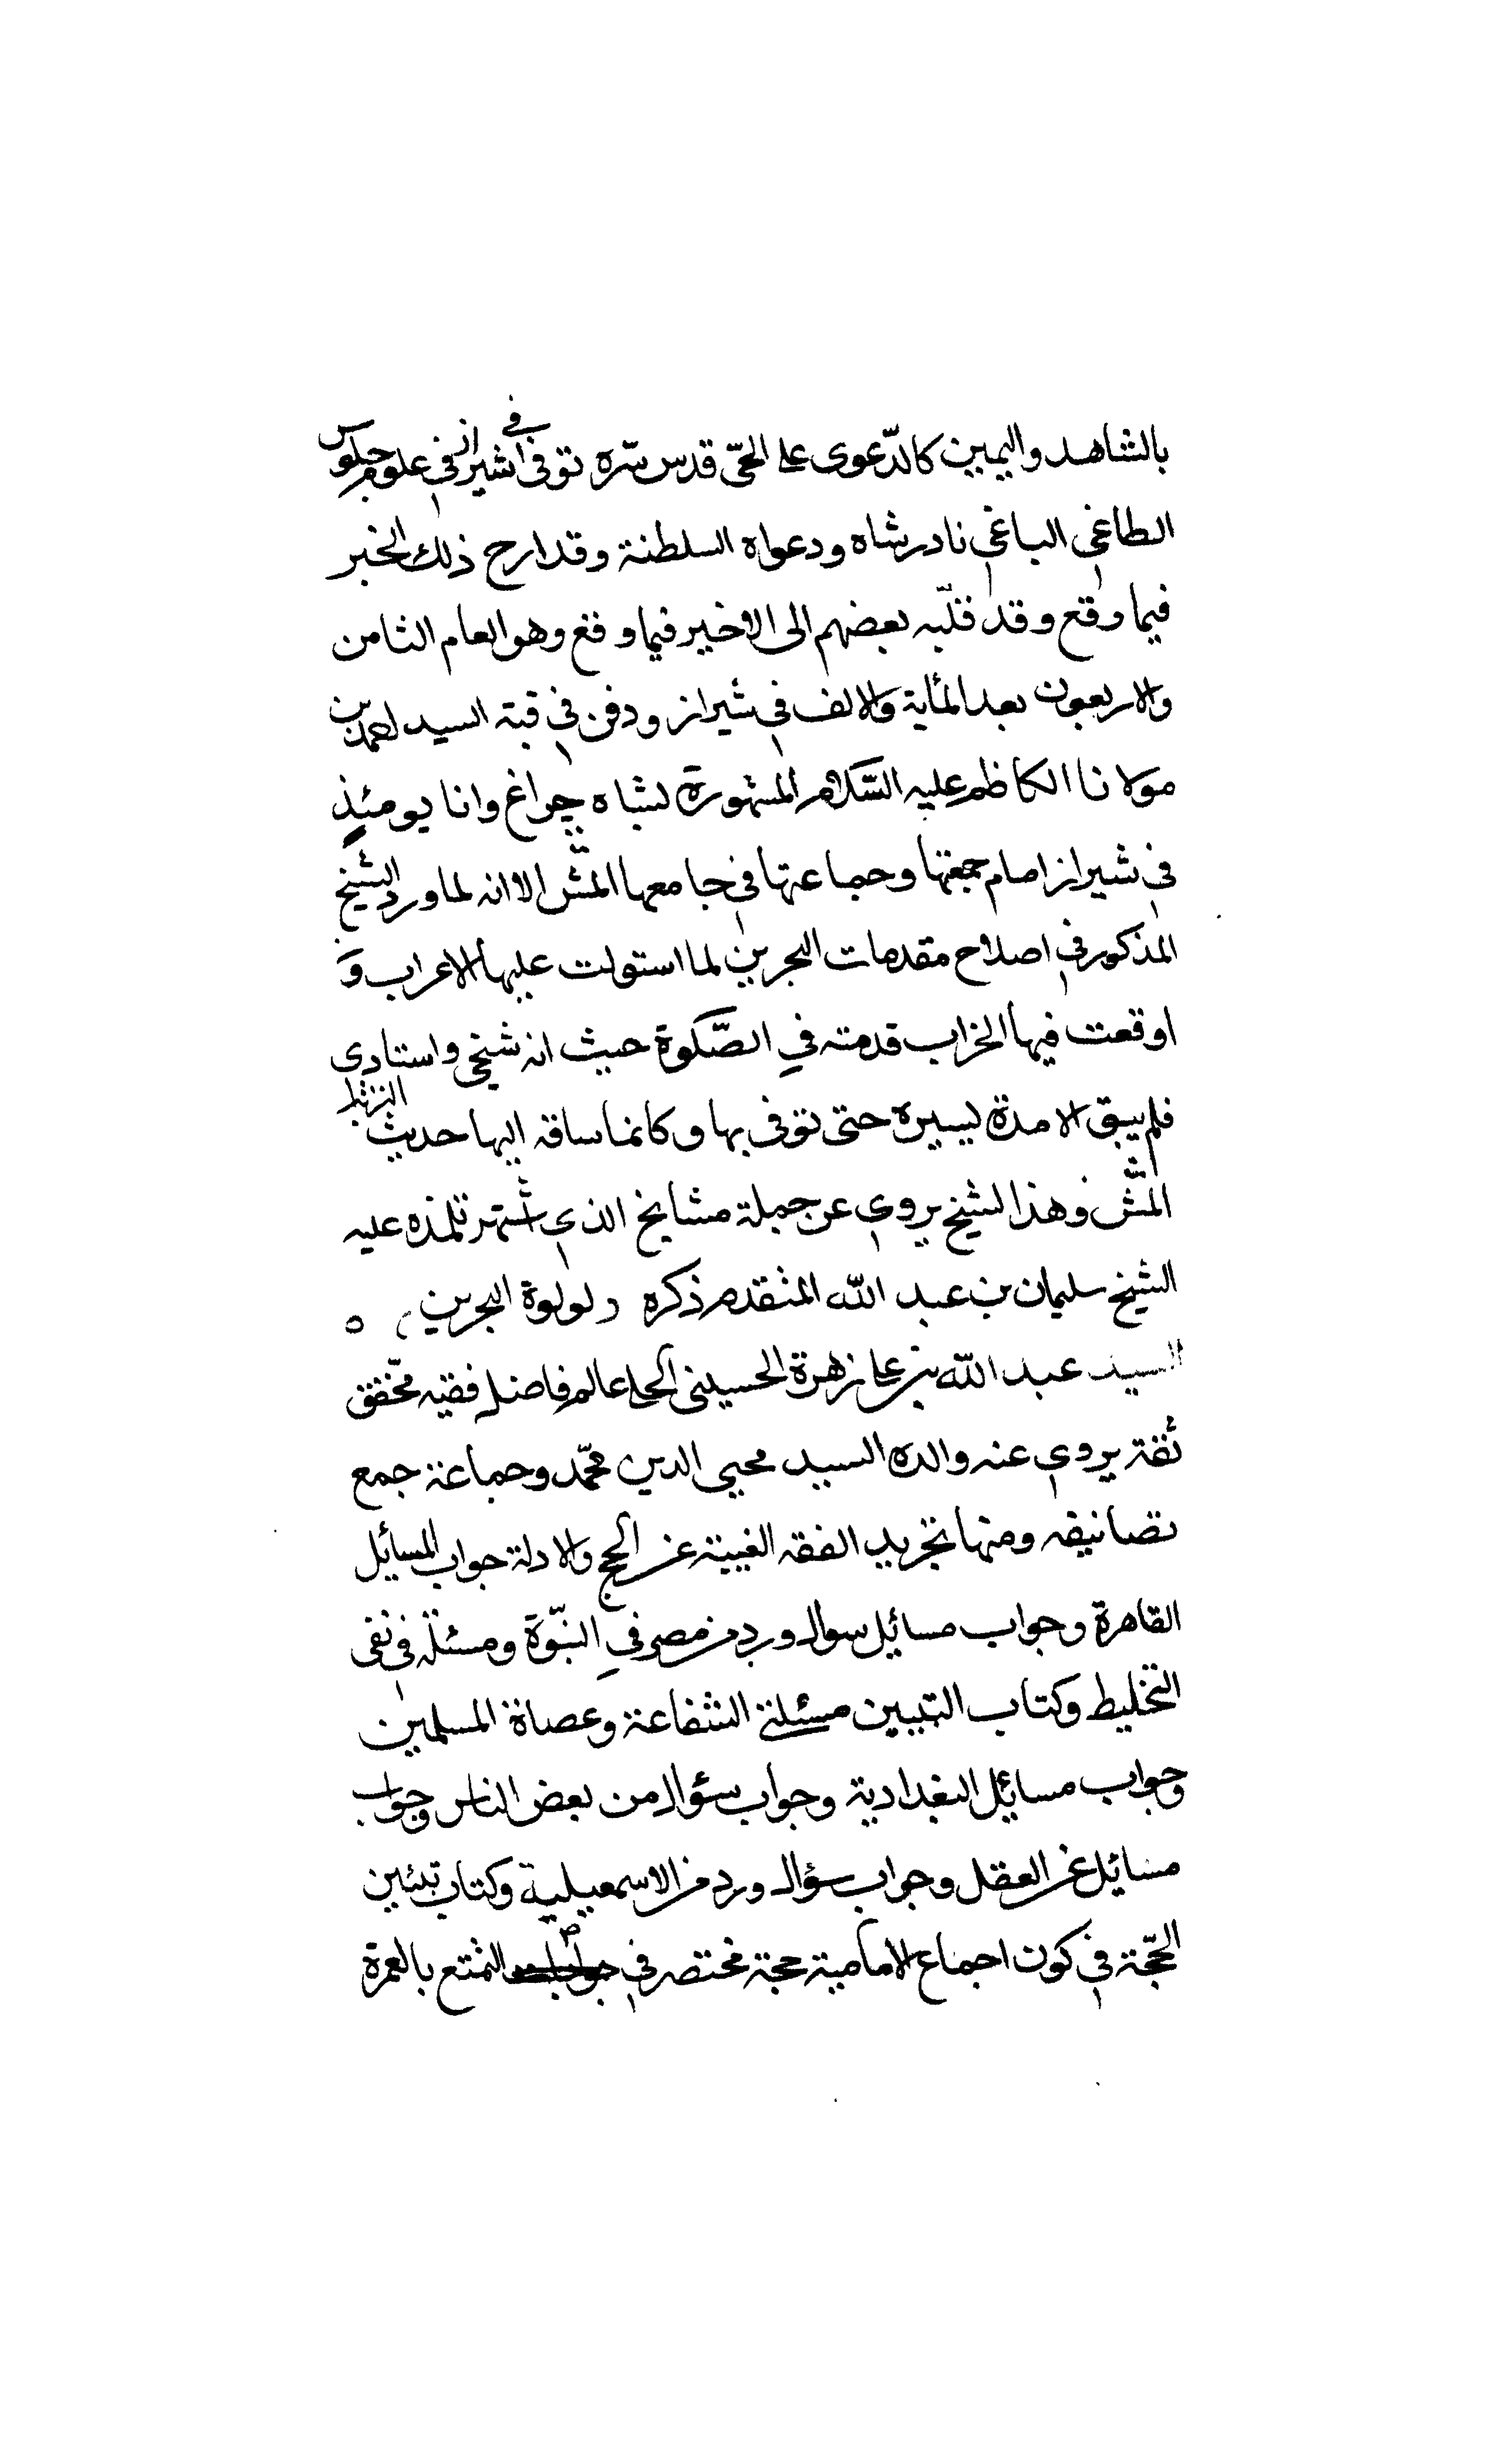 بالشاهد واليمين كالدّعوى على الحىّ قدس سّره توفى في شيراز في علوم جلوس
الطاغي الباغي نادر شاه ودعواه السلطنة وقد ارح ذلك الخبر
فيما وقع وقد قلّبه بعضهم الى الاخير فيما وقع وهو العام الثامن
والاربعون بعد المأية والالف في شيراز ودفن في قبة السيد احمد بن
مولانا الكاظم عليه السّلام المشهورة بشاه چراغ وانا يومئذٍ
في شيراز امام جمعتها وجماعتها في جامعها المش الا انه لما ورد الشيخ
المذكور في اصلاح مقدمات البحرين لما استولت عليها الاعراب وَ
اوقعت فيها الخراب قدمته في الصّلوة حيث انه شيخي واستادى
فلم يبق الا مدة يسيرة حتى توفى بها وكانما ساقه اليها حديث التربة
المش وهذا الشيخ يروي عن جملة مشايخ الذي اشتهر تلمذه عليه
الشيخ سليمان بن عبد اللّه المتقدم ذكره لولوة البحرين ٥
السيد عبد اللّه بن على زهرة الحسينى الحلى عالم فاضل فقيه محّقق
ثقة يروي عنه والده السيد محيي الدين محمّد وجماعة جمع
تصانيفه ومنها تجريد الفقه الغيبة عن الحجج والادلة جواب المسائل
القاهرة وجواب مسائل سوال ورد من مصر في النبّوة ومسئلة في نفى
التخليط وكتاب التبيين مسئلتي الشفاعة وعصاة المسلمين
وجواب مسائل البغدادية وجواب سئوال من بعض الناس وجواب
مسائل عن العقل وجواب سؤال ورد من الاسمعيلية وكتاب تبيين
الحجّة في كون اجماع الامامية حجة مختصر في التمتع بالعمرة